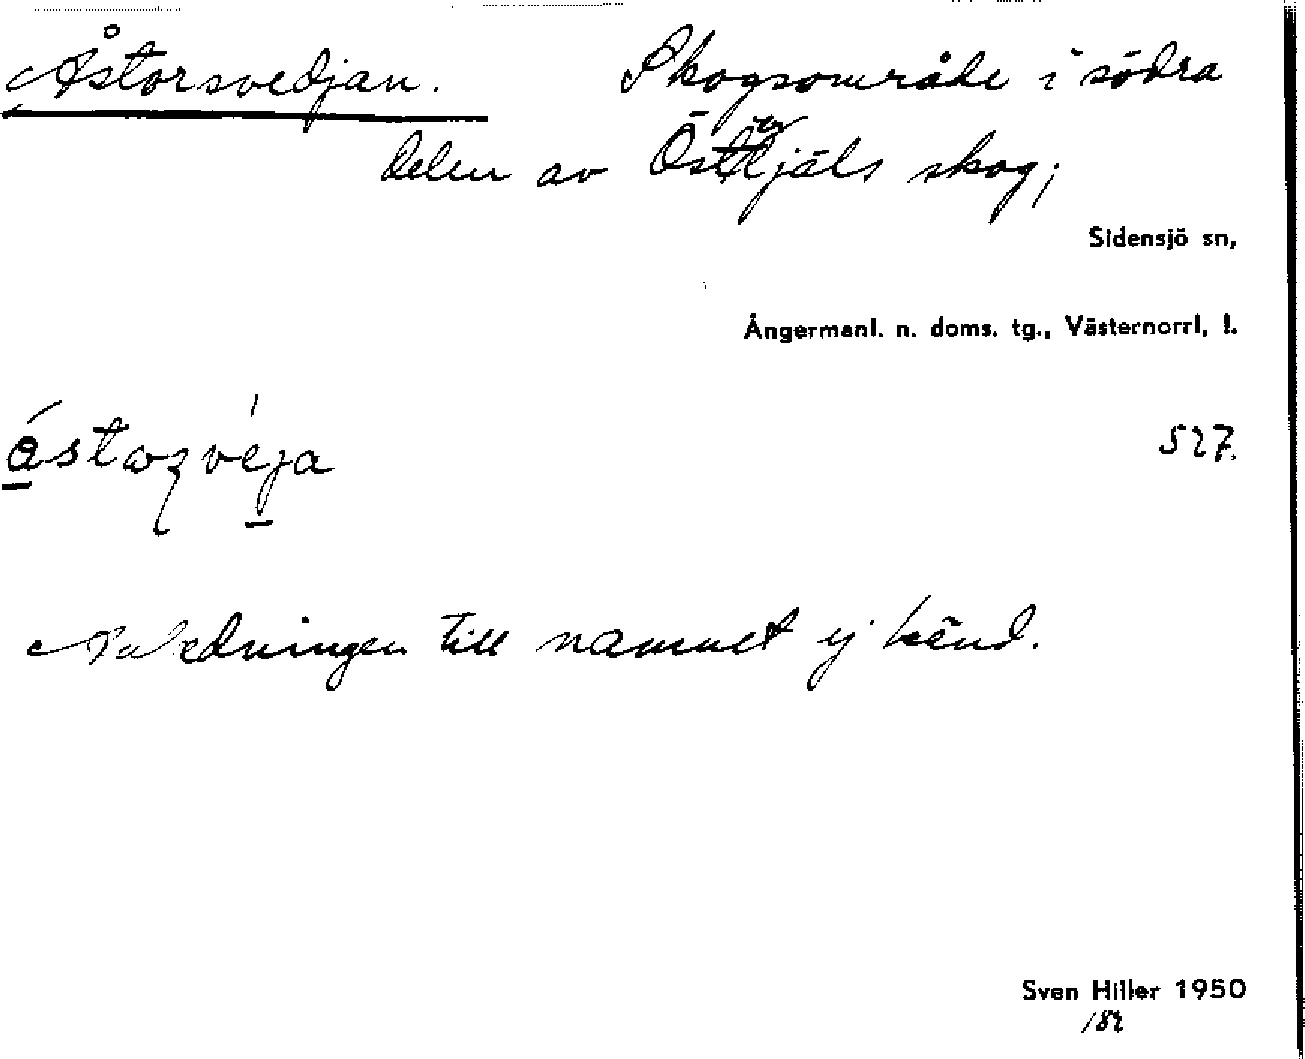 Åstorsvedjan. Skogsområde i södra
delen av Österjäls skog;
Sidensjö sn,
Ångermanl. n. doms. tg., Västernorrl. l.
527.
Anledningen till namnet ej känd.
Sven Hiller 1950
/82